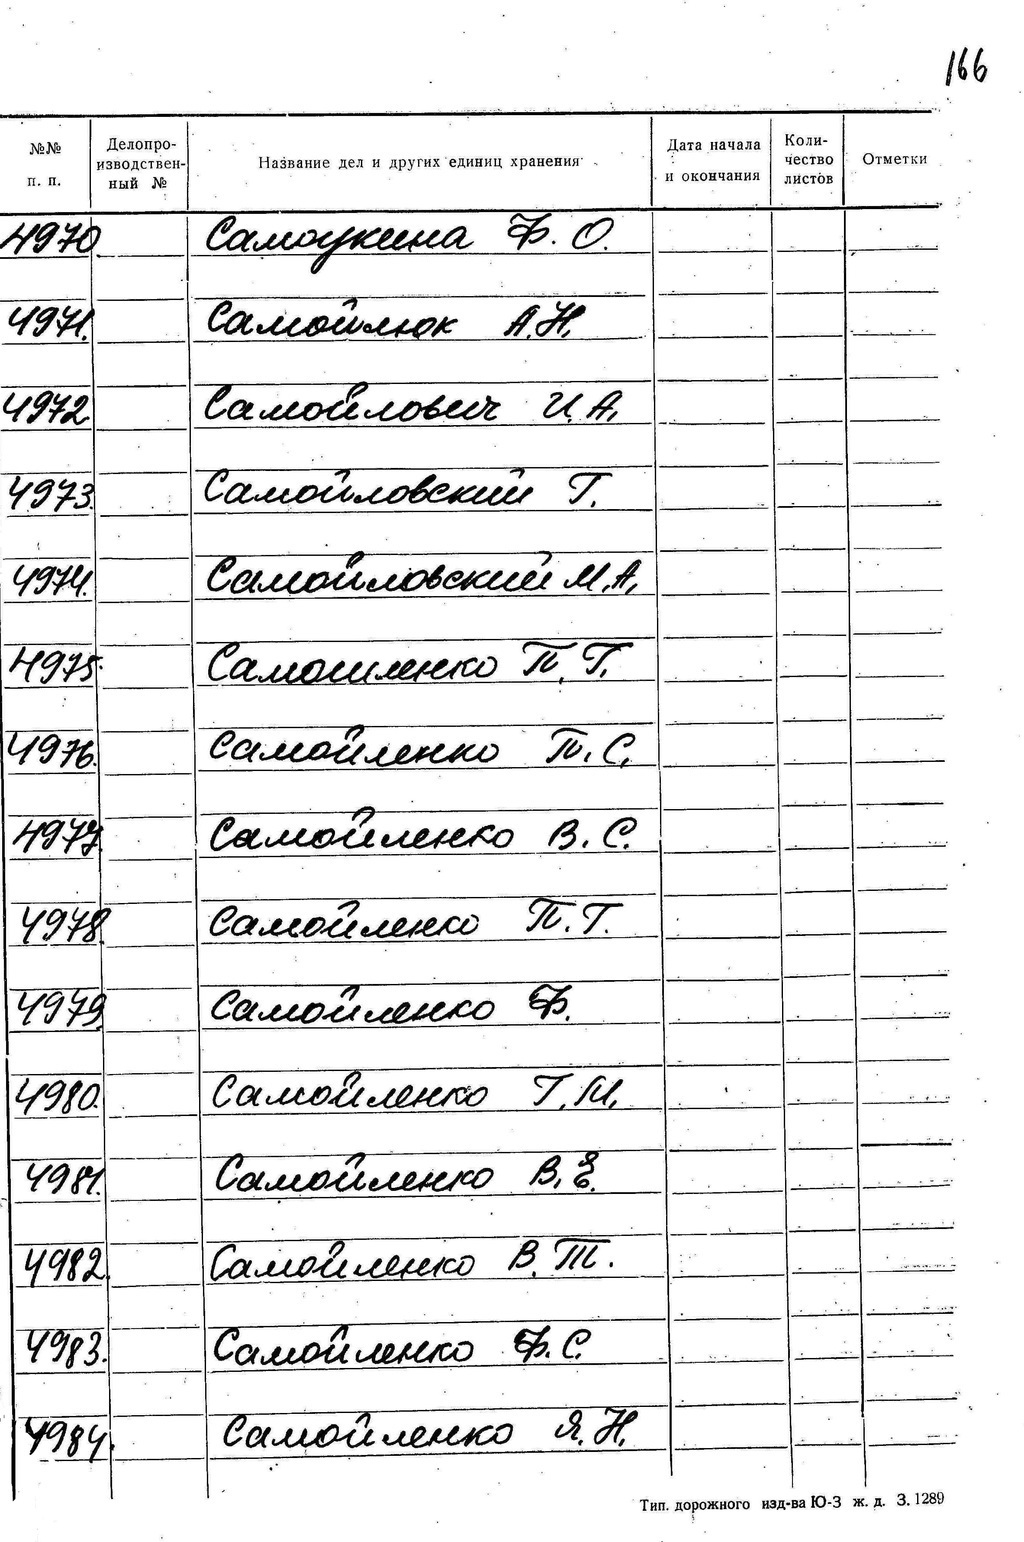 166
№№ п. п. Делопроизводственный № Название дел и других единиц хранения Дата начала и окончания Количество листов Отметки
4970 Самоукина Ф. О.
4971. Самойлюк А. Н.
4972 Самойлович И. А.
4973. Самойловский Г.
4974. Самойловский М. А.
4975. Самошленко П. Г.
4976. Самойленко П. С.
4977. Самойленко В. С.
4978. Самойленко П. Г.
4979. Самойленко Ф.
4980. Самойленко Г. М.
4981. Самойленко В. Е.
4982. Самойленко В. Т.
4983. Самойленко Ф. С.
4984. Самойленко Я. Н.
Тип. дорожного изд-ва Ю-З ж. д. З. 1289